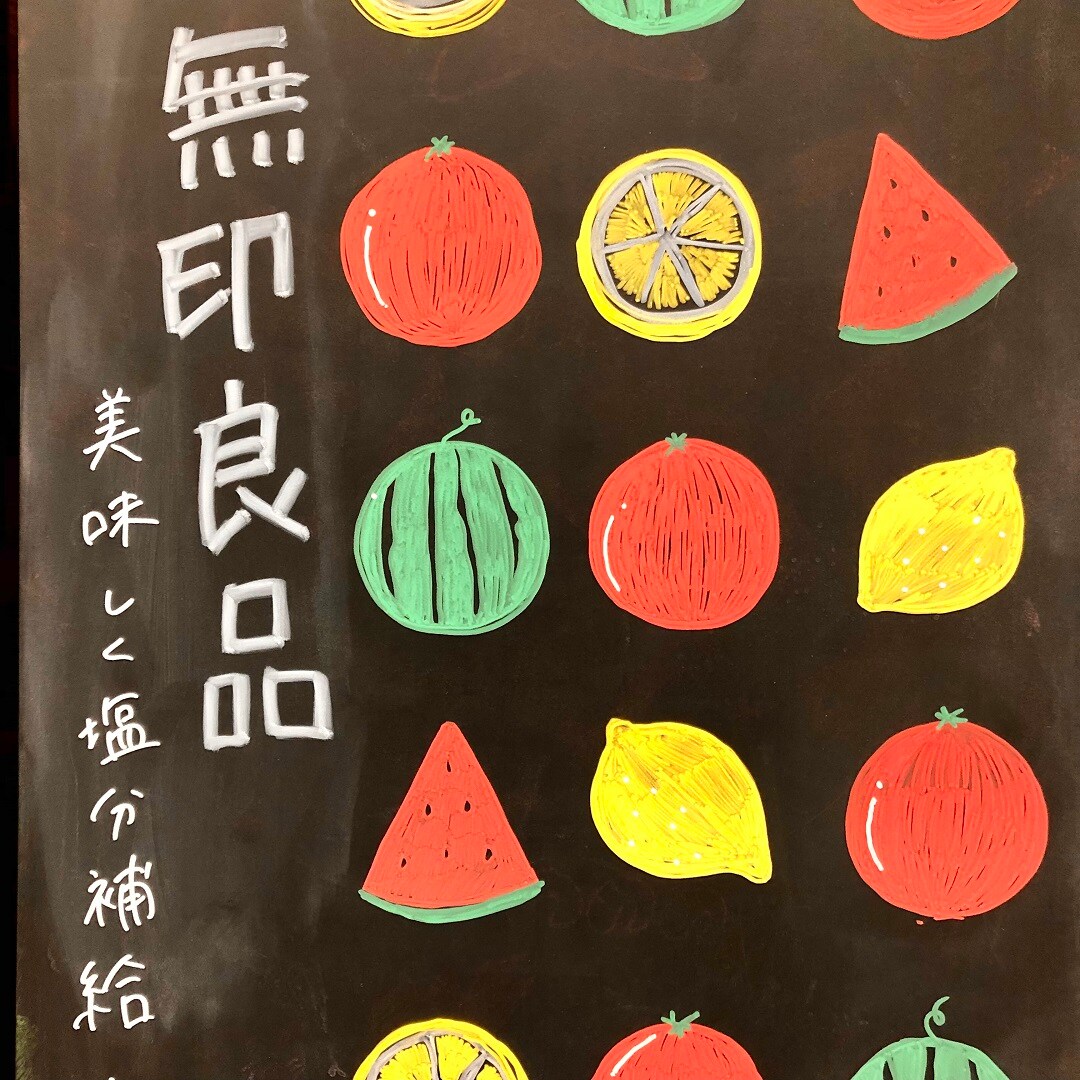 無印良品
美味しく塩分補給